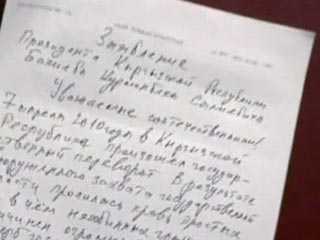 Заявление
Президента Кыргызской Республики
Бакиева Курманбека Салиевича
Уважаемые соотечественники!
7 апреля 2010 года в Кыргызской
Республике произошел государ-
ственный переворот. В результате
вооруженного захвата государственной
власти пролилась кровь простых
ни в чем неповинных граждан